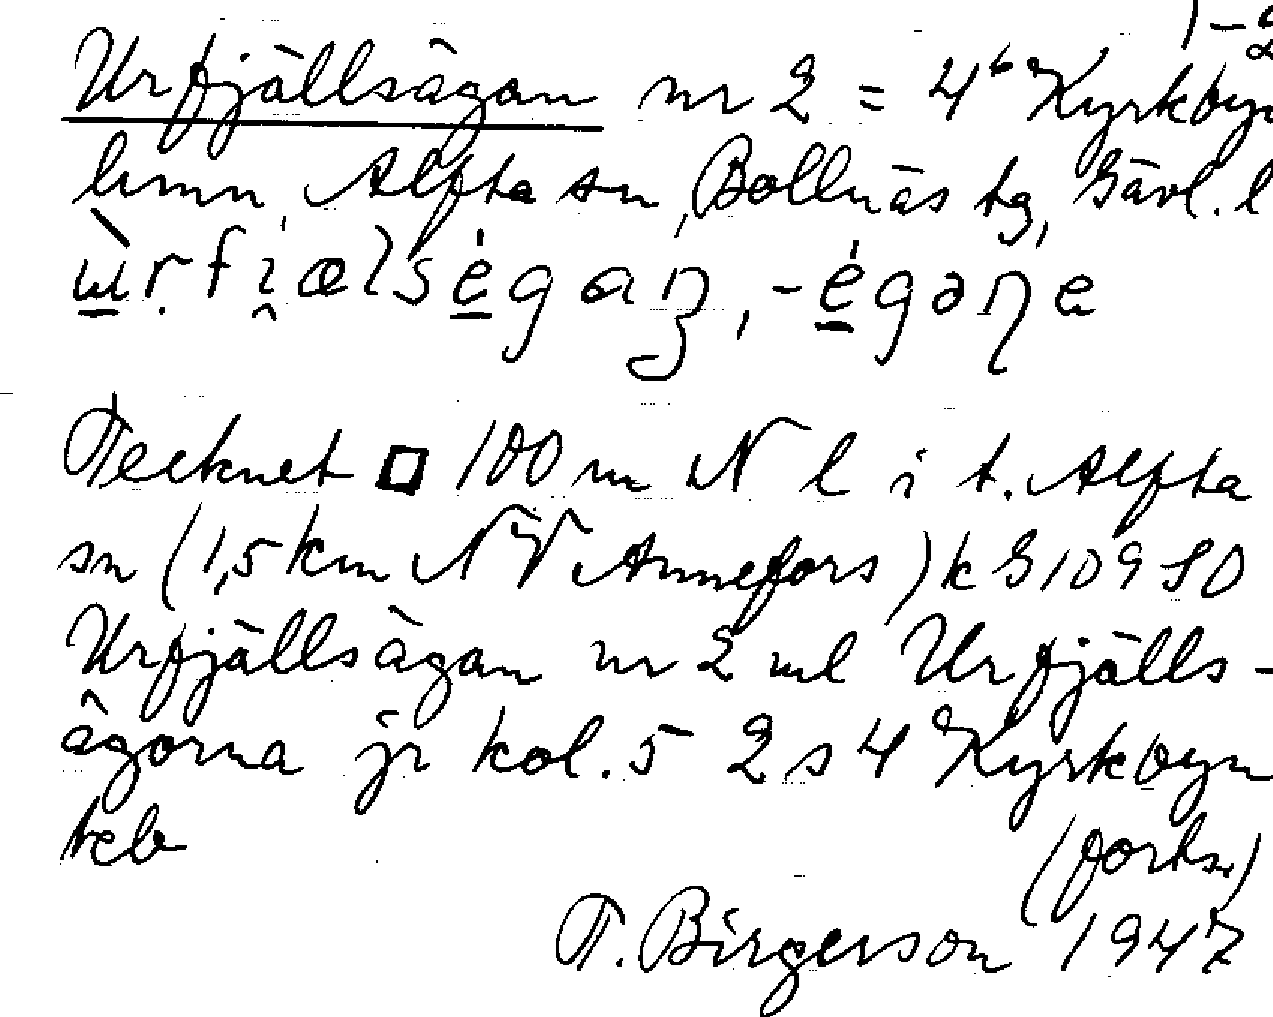 1-2
Urfjällsägan nr 2 = 4⁶ Kyrkbyn
lmn, Alfta sn, Bollnäs tg, Gävl. l
ɯ̀r̥fi̯ælségan̥, -égəŋe
Tecknet □ 100 m N l i t. Alfta
sn (1,5 km NV Annefors) k G 109 SO
Urfjällsägan nr 2 ml Urfjälls-
ägorna jr kol. 5 2 s 4 Kyrkbyn
teb
(forts.)
T. Birgerson 1947